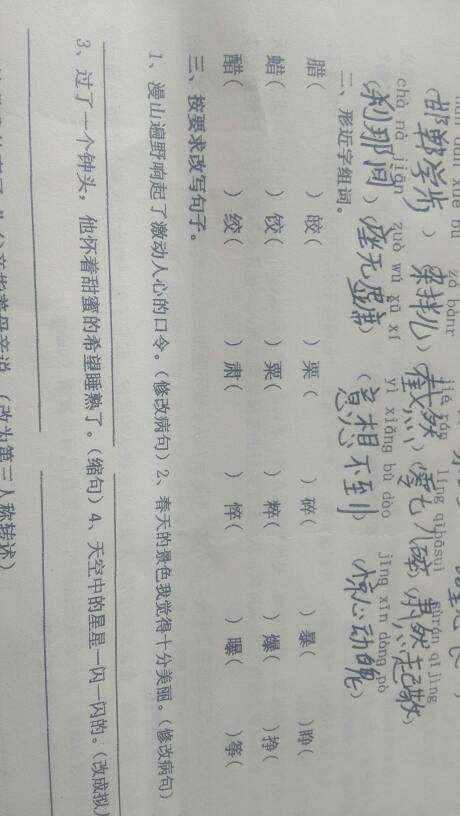 dān xué bù zá bànr jié rán líng qībāsuì sùrán qǐ jìng
(邯郸学步) (杂拌儿) (截然) (零七八碎) 然起敬)
chà nà jiān zuò wú xū xí yì xiǎng bù dào jīng xīn dòng pò
(刹那间) (座无虚席) (意想不到) (惊心动魄)
二、形近字组词。
腊( )皎( )栗( )碎( )暴( )睁(
蜡( )饺( )粟( )粹( )爆( )挣(
醋( )绞( )肃( )悴( )曝( )筝(
三、按要求改写句子。
1、漫山遍野响起了激动人心的口令。(修改病句)2、春天的景色我觉得十分美丽。(修改病句)
3、过了一个钟头，他怀着甜蜜的希望睡熟了。(缩句)4、天空中的星星一闪一闪的。(改成拟
(改为第三人称转述)